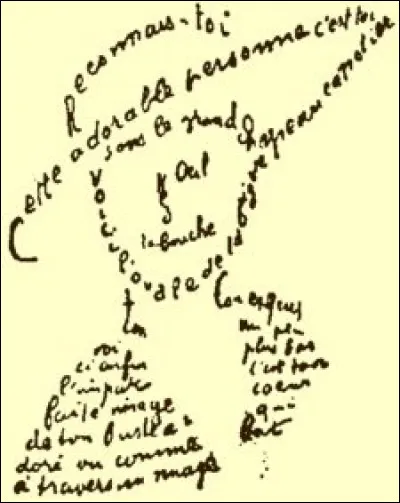 Reconnais-toi
Cette adorable personne c'est toi
sous le grand chapeau canotier
Œil
la bouche
Voici l'ovale de ta figure
ton
cou exquis
voi
un peu
ci enfin
plus bas
l'impar
c'est ton
faite image
coeur
de ton buste a
qui
doré vu comme
bat
à travers un nuage